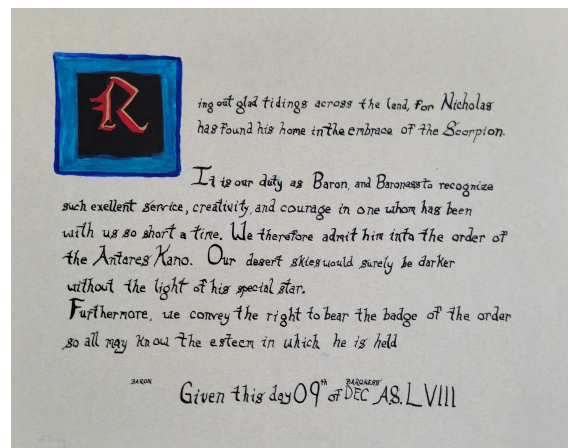 Ring out glad tidings across the land, for Nicholas
has found his home in the embrace of the Scorpion.
It is our duty as Baron, and Baroness to recognize
such exellent service, creativity, and courage in one whom has been
with us so short a time. We therefore admit him into the order of
the Antares Kano. Our desert skies would surely be darker
without the light of his special star.
Furthermore, we convey the right to bear the badge of the order
so all may know the esteem in which he is held
BARON BARONESS
Given this day 09th of DEC A.S. LVIII